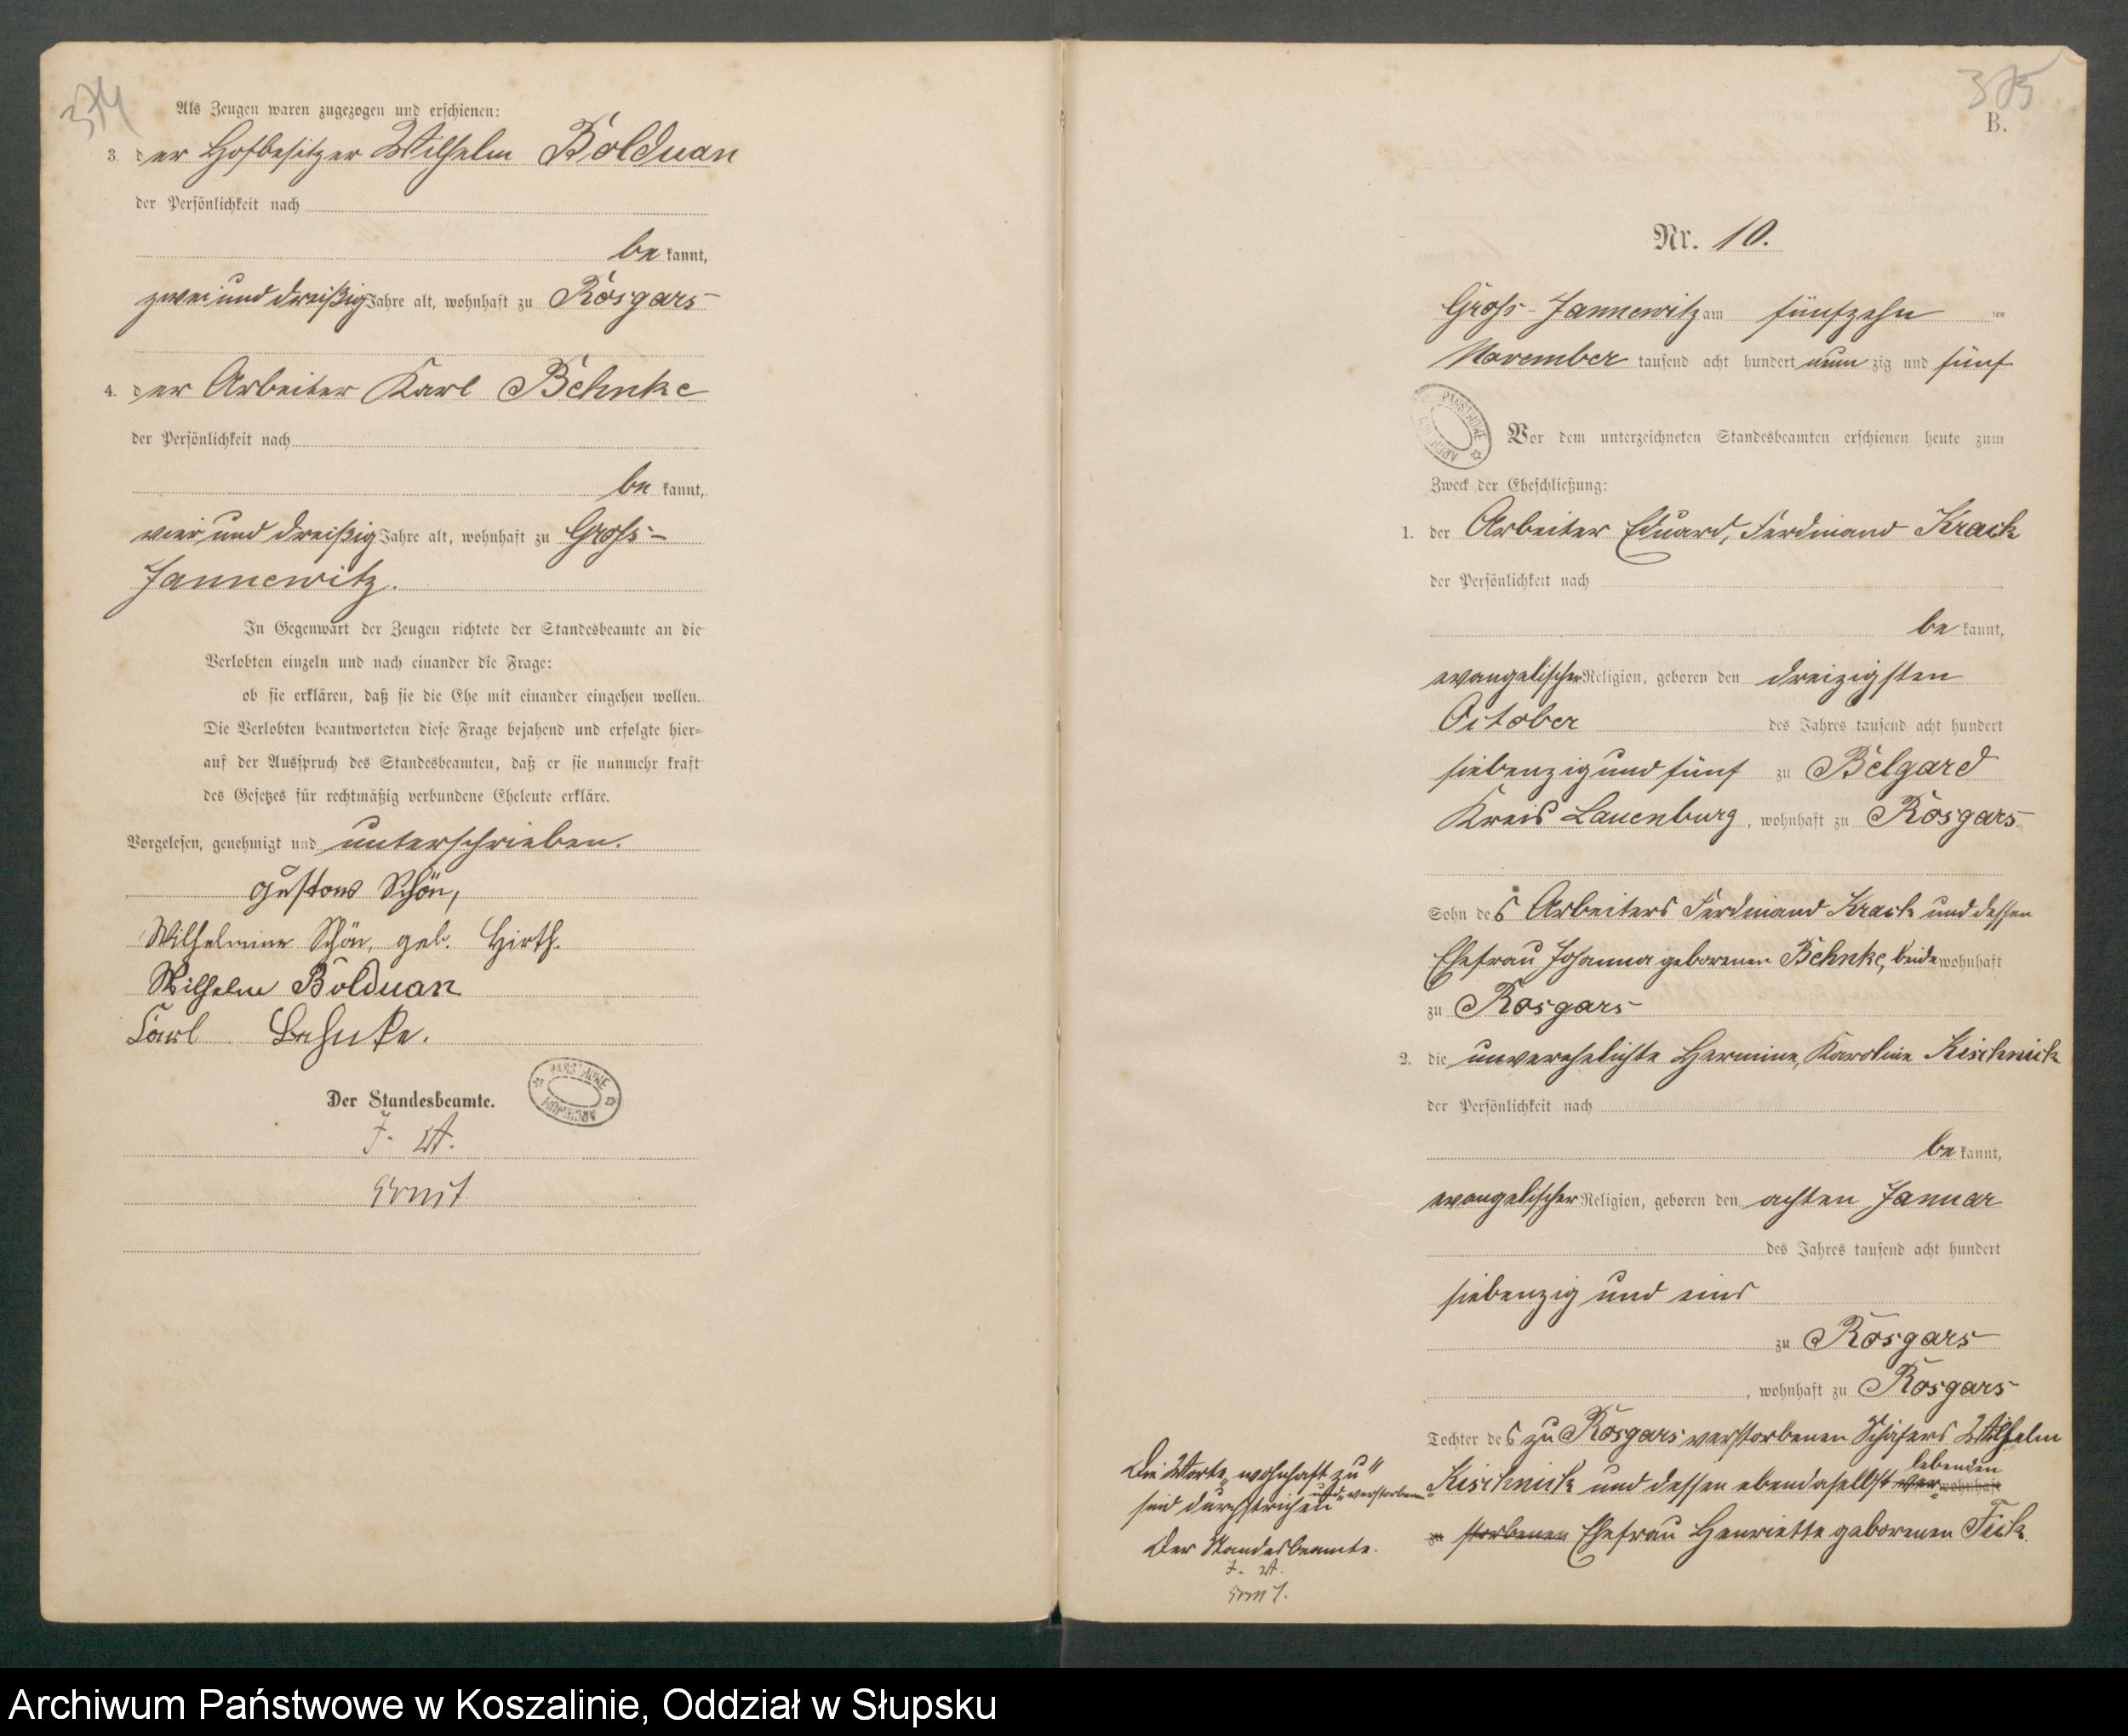 374
Als Zeugen waren zugezogen und erschienen:
3. der Hofbesitzer Wilhelm Bolduan
der Persönlichkeit nach
be kannt,
zwei und dreißig Jahre alt, wohnhaft zu Rosgars
4. der Arbeiter Karl Behnke
der Persönlichkeit nach
be kannt,
vier und dreißig Jahre alt, wohnhaft zu Groß-
Jannewitz.
In Gegenwart der Zeugen richtete der Standesbeamte an die
Verlobten einzeln und nach einander die Frage:
ob sie erklären, daß sie die Ehe mit einander eingehen wollen.
Die Verlobten beantworteten diese Frage bejahend und erfolgte hier-
auf der Ausspruch des Standesbeamten, daß er sie nunmehr kraft
des Gesetzes für rechtmäßig verbundene Eheleute erkläre.
Vorgelesen, genehmigt und unterschrieben.
Gustav Schön,
Wilhelmine Schön, geb. Hirth.
Wilhelm Bolduan
Carl Behnke.
Der Standesbeamte.
375
B.
Nr. 10.
Groß-Jannewitz am fünfzehn ten
November tausend acht hundert neun zig und fünf
Vor dem unterzeichneten Standesbeamten erschienen heute zum
Zweck der Eheschließung:
1. der Arbeiter Eduard, Ferdinand Krack
der Persönlichkeit nach
be kannt,
evangelischer Religion, geboren den dreizigsten
October des Jahres tausend acht hundert
siebenzig und fünf zu Belgard
Kreis Lauenburg, wohnhaft zu Rosgars
Sohn des Arbeiters Ferdinand Krack und dessen
Ehefrau Johanna geborenen Behnke, beide wohnhaft
zu Rosgars
2. die unverehelichte Hermine, Karoline Kischnick
der Persönlichkeit nach
be kannt,
evangelischer Religion, geboren den achten Januar
des Jahres tausend acht hundert
siebenzig und eins
zu Rosgars
, wohnhaft zu Rosgars
Tochter des zu Rosgars verstorbenen Schäfers Wilhelm
lebenden
Kischnick und dessen ebendaselbst ver- wohnhaft
zu storbenen Ehefrau Henriette geborenen Fick
Die Worte „wohnhaft zu"
und „verstorbenen"
sind durchstrichen
Der Standesbeamte.
Archiwum Państwowe w Koszalinie, Oddział w Słupsku